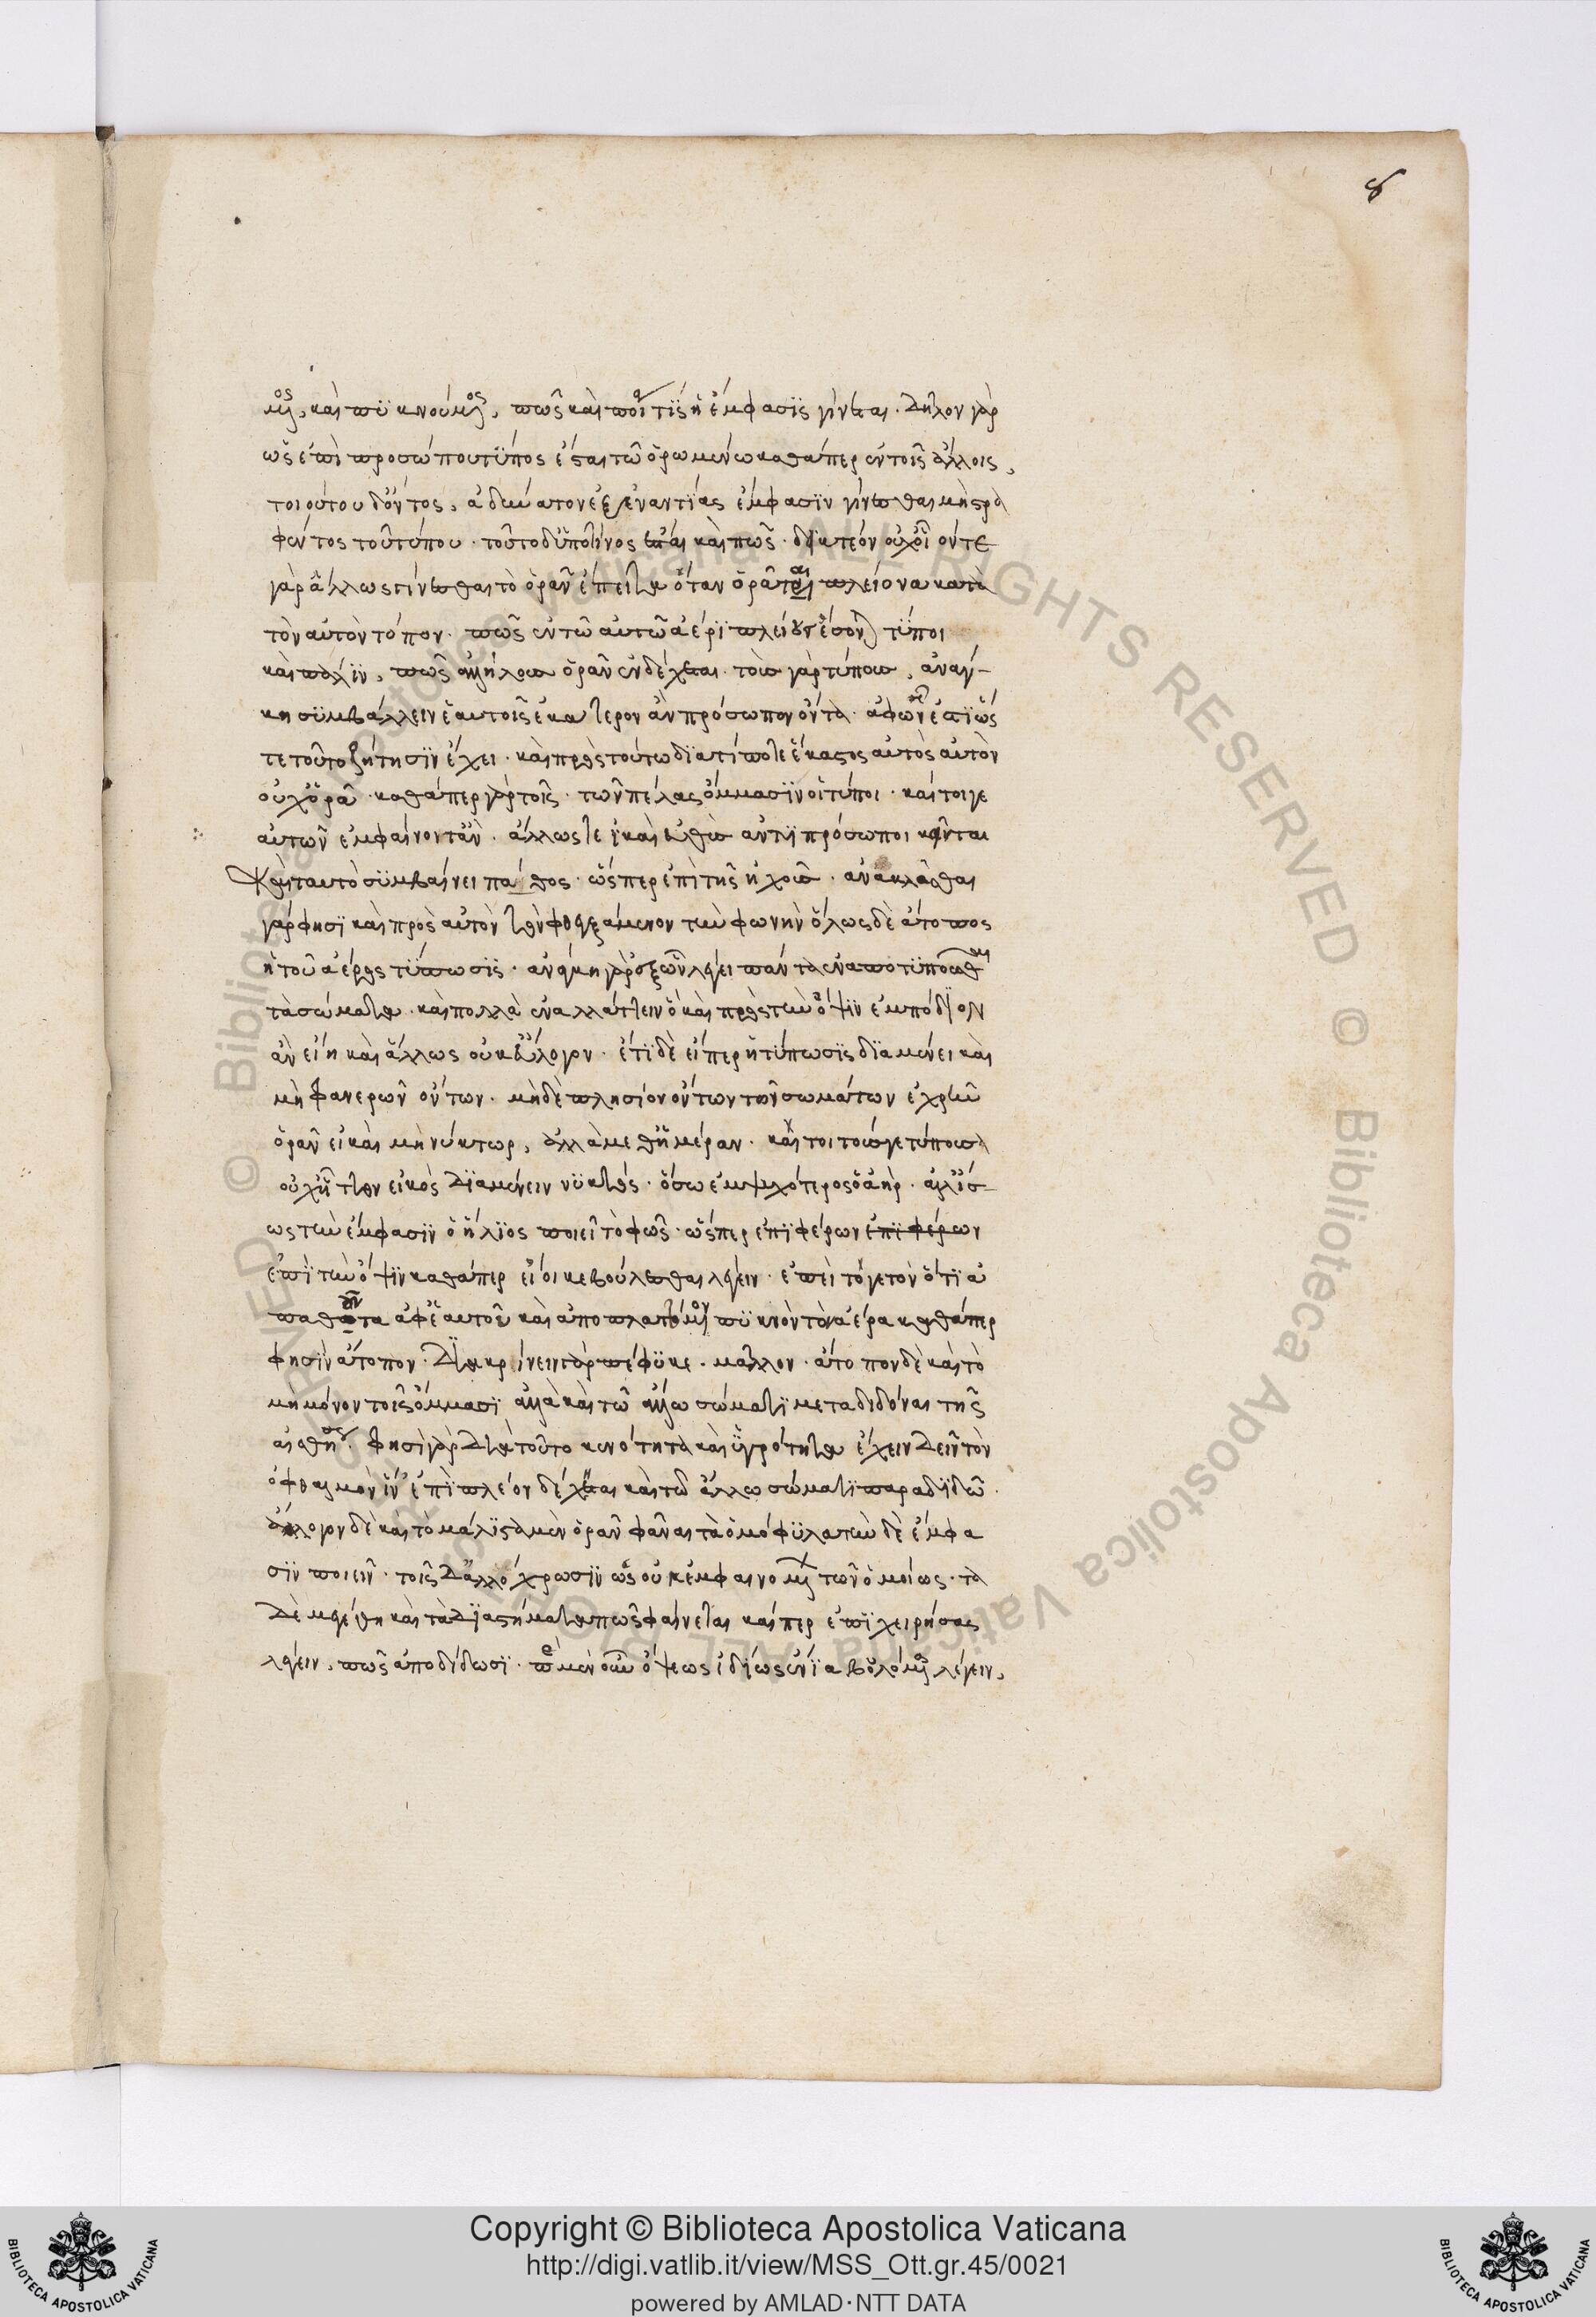 8
μος, καὶ πυκνούμενος, πῶς καὶ ποία τίς ἡ ἔμφασις γίνεται. δῆλον γὰρ
ὡς ἐπὶ προσώπου τύπος ἔσται τῶ ὁρωμένω καθάπερ ἐν τοῖς ἄλλοις,
τοιούτου δ' ὄντος, ἀδύνατον ἐξ ἐναντίας ἔμφασιν γίνεσθαι μὴ στρα
φέντος τοῦ τύπου. τοῦτο δ' ὑπό τινος ἔσται καὶ πῶς. δεικτέον οὐχ οἷόν τε
γὰρ ἄλλως γίνεσθαι τὸ ὁρᾶν ἔπειτα ὅταν ὁρᾶται πλείονα κατὰ
τὸν αὐτὸν τόπον. πῶς ἐν τῶ αὐτῶ ἀέρι πλείους ἔσονται τύποι
καὶ πάλιν, πῶς ἀλλήλους ὁρᾶν ἐνδέχεται. τοὺς γὰρ τύπους, ἀνάγ-
κη συμβάλλειν ἑαυτοῖς ἑκάτερον ἀντιπρόσωπον ὄντα. ἀφ' ὧν ἐστὶ ὥς
τε τοῦτο ζήτησιν ἔχει. καὶ πρὸς τούτω διατί ποτε ἕκαστος αὐτὸς αὑτὸν
οὐχ ὁρᾶ. καθάπερ γὰρ τοῖς. τῶν πέλας ὄμμασιν οἱ τύποι. καί τοι γε
αὐτῶν ἐμφαίνοιντ' ἄν. ἄλλως τε καὶ εὐθὺς ἀντιπρόσωποι κεῖνται
καὶ ταυτὸ συμβαίνει πάθος. ὥσπερ ἐπὶ τῆς ἠχοῦς. ἀνακλᾶσθαι
γάρ φησι καὶ πρὸς αὐτὸν τὸν φθεγξάμενον τὴν φωνὴν ὅλως δὲ ἄτοπος
ἡ τοῦ ἀέρος τύπωσις. ἀνάγκη γὰρ ἐξ ὧν λέγει πάντα ἐναποτυποῦσθαι
τὰ σώματα. καὶ πολλὰ ἐναλλάττειν ὃ καὶ πρὸς τὴν ὄψιν ἐμπόδιον
ἂν εἴη καὶ ἄλλως οὐκ εὔλογον. ἔτι δὲ εἴπερ ἡ τύπωσις διαμένει καὶ
μὴ φανερῶν ὄντων. μηδὲ πλησίον ὄντων τῶν σωμάτων ἐχρῆν
ὁρᾶν εἰ καὶ μὴ νύκτωρ, ἀλλὰ μεθ' ἡμέραν. καί τοι τούς γε τύπους
οὐχ ἧττον εἰκὸς διαμένειν νυκτός. ὅσω ἐμψυχότερος ὁ ἀήρ. ἀλλ' ἴσ-
ως τὴν ἔμφασιν ὁ ἥλιος ποιεῖ τὸ φῶς. ὥσπερ ἐπιφέρων ἐπιφέρων
ἐπὶ τὴν ὄψιν καθάπερ ἔοικε βούλεσθαι λέγειν. ἐπεὶ τό γε τὸν ὅτι ἀ
παθοῦντα ἀφ' ἑαυτοῦ καὶ ἀποπλαττόμενον πυκνὸν τὸν ἀέρα καθάπερ
φησὶν ἄτοπον. διακρίνειν γὰρ πέφυκε. μᾶλλον. ἄτοπον δὲ καὶ τὸ
μὴ μόνον τοῖς ὄμμασι ἀλλὰ καὶ τῶ ἄλλω σώματι μεταδιδόναι τῆς
αἰσθήσεως. φησὶ γὰρ διὰ τοῦτο κενότητα καὶ ὑγρότητα ἔχειν δεῖν τὸν
ὀφθαλμὸν ἵν' ἐπὶ πλέον δέχηται καὶ τῶ ἄλλω σώματι παραδιδῶ.
ἄλογον δὲ καὶ τὸ μάλιστα μὲν ὁρᾶν φᾶναι τὰ ὁμόφυλα τὴν δὲ ἔμφα
σιν ποιεῖν. τοῖς δ' ἀλλόχρωσιν ὡς οὐκ ἐμφαινομένων τῶν ὁμοίως. τὰ
δὲ μεγέθη καὶ τὰ διαστήματα πῶς φαίνεται καίπερ ἐπιχειρήσας
λέγειν, πῶς ἀποδίδωσι. περὶ μὲν οὖν ὄψεως ἰδίως ἔνια βουλόμενος λέγειν,
Copyright © Biblioteca Apostolica Vaticana
http://digi.vatlib.it/view/MSS_Ott.gr.45/0021
powered by AMLAD·NTT DATA